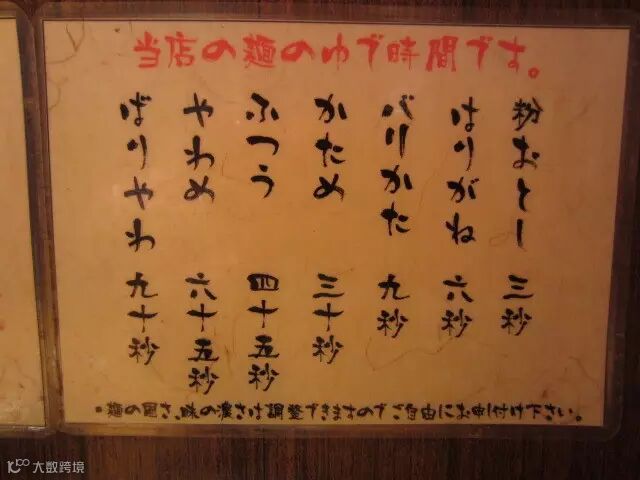 当店の麺のゆで時間です。
粉おとし 三秒
はりがね 六秒
バリかた 九秒
かため 三十秒
ふつう 四十五秒
やわめ 六十五秒
ばりやわ 九十秒
・麺の固さ、味の濃さは調整できますのでご自由にお申付け下さい。
大数跨境